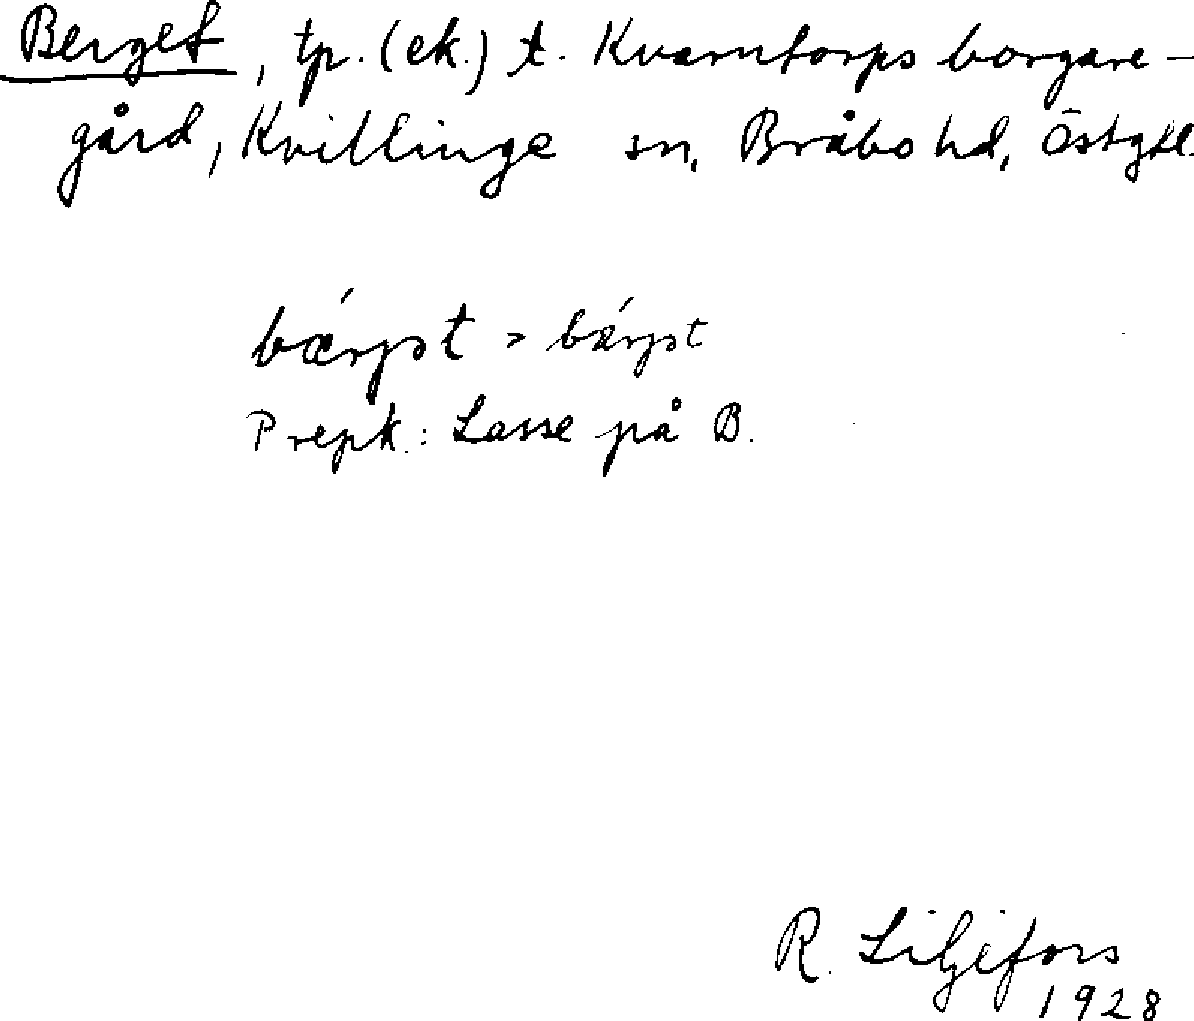 Berget, tp. (ek.) t. Kvarntorps borgare-
gård, Kvillinge sn, Bråbo hd, Östgtl.
bǽrjət > bǽrjət
Prepk.: Lasse på B.
R. Liljefors
1928